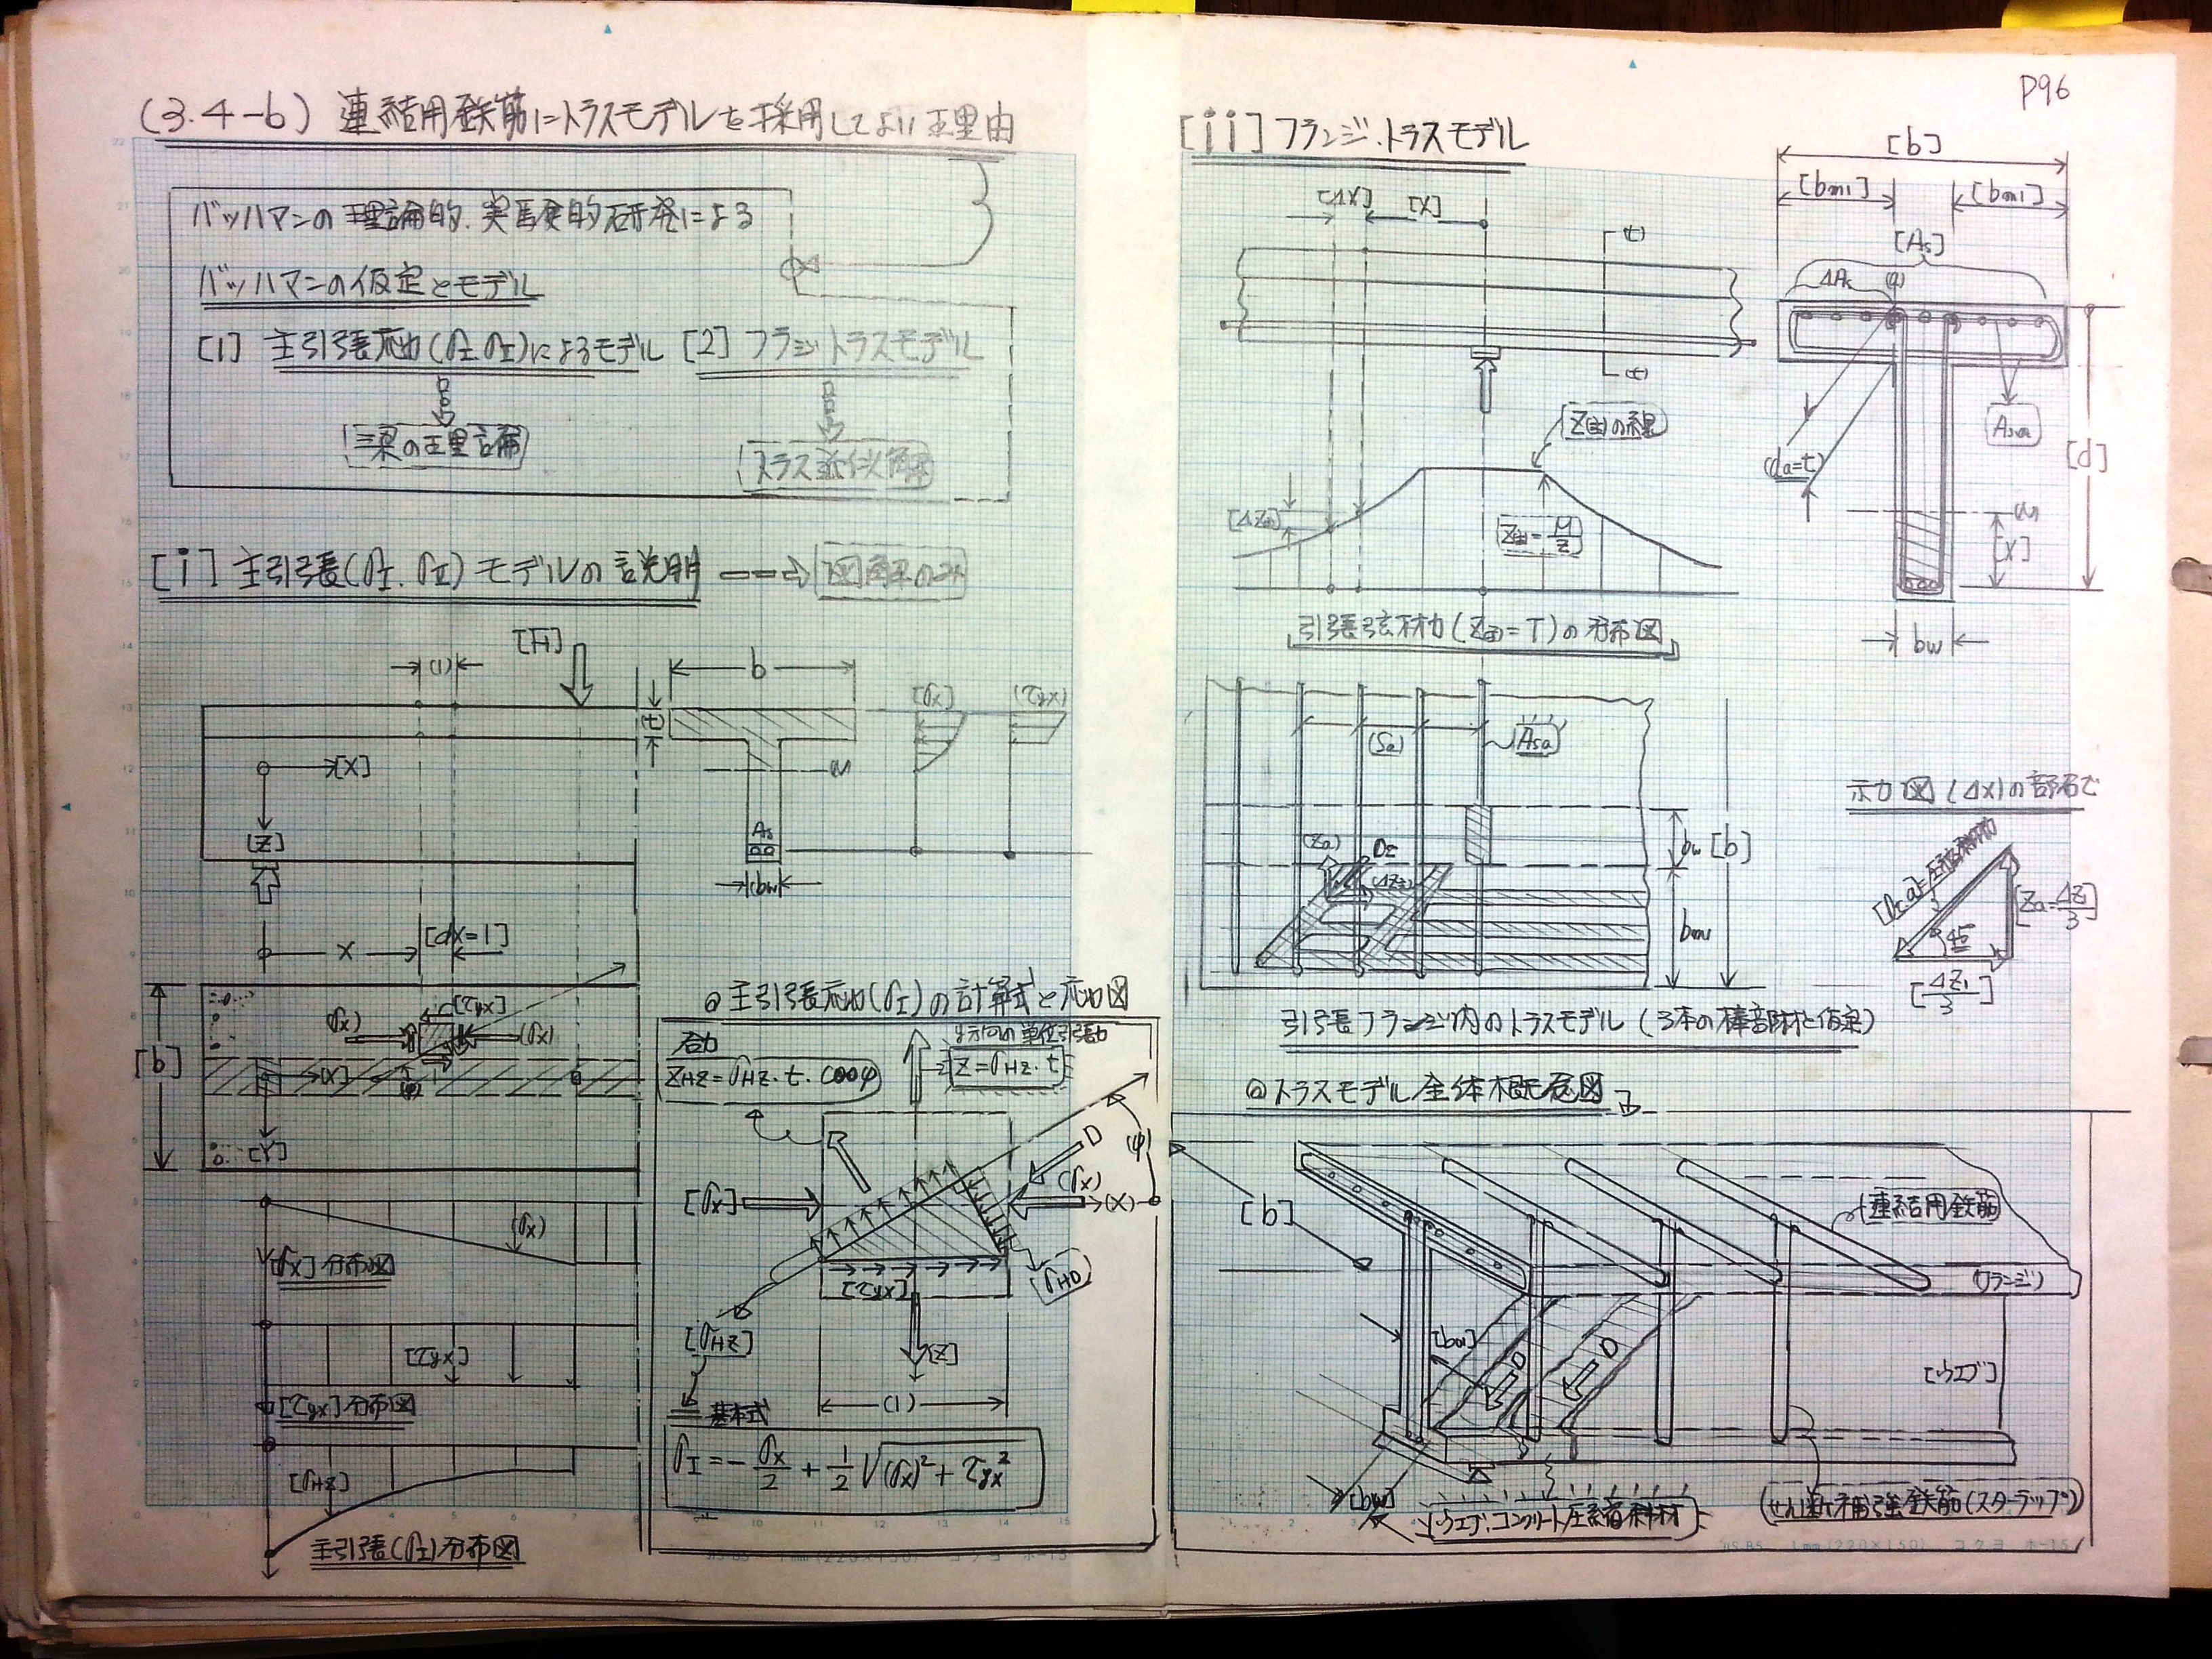 P96
(3.4-b) 連結用鉄筋にトラスモデルを採用してよい理由
バッハマンの理論的.実験的研究による
バッハマンの仮定とモデル
[1] 主引張応力(σI.σII)によるモデル [2] フランジトラスモデル
梁の理論
トラス近似解
[i] 主引張(σI.σII)モデルの説明
図解のみ
[H]
(1)
b
[t]
[σx]
(τyx)
[X]
[Z]
As
(bw)
X
[dx=1]
[b]
[τyx]
(σx)
(σx)
(X)
[Y]
(σx)
[σx]分布図
[τyx]
[τyx]分布図
[σHZ]
主引張(σI)分布図
◎主引張応力(σI)の計算式と応力図
合力
ZHZ=σHZ.t.cosφ
y方向の単位引張力
Z=σHZ.t
D
(φ)
[σx]
(σx)
(X)
[τyx]
[σHD]
[σHZ]
[Z]
(1)
基本式
σI=-σx/2+1/2√(σx)²+τyx²
[ii] フランジ.トラスモデル
[ΔX]
[X]
(t)
(t)
[b]
[bm1]
[bm1]
[As]
ΔAs
Asa
(da=t)
[d]
[X]
bw
の線
引張弦材力(=T)の分布図
(Sa)
Asa
(Za)
bw
[b]
bm1
示力図(ΔX)の部分で
45
[Za=ΔZ1/3]
[ΔZ1/3]
引張フランジ内のトラスモデル(3本の棒部材と仮定)
◎トラスモデル全体概念図
[b]
連結用鉄筋
(フランジ)
[bw]
D
D
[ウエブ]
[bw]
ウエブ.コンクリート圧縮斜材
(せん断補強鉄筋(スターラップ))